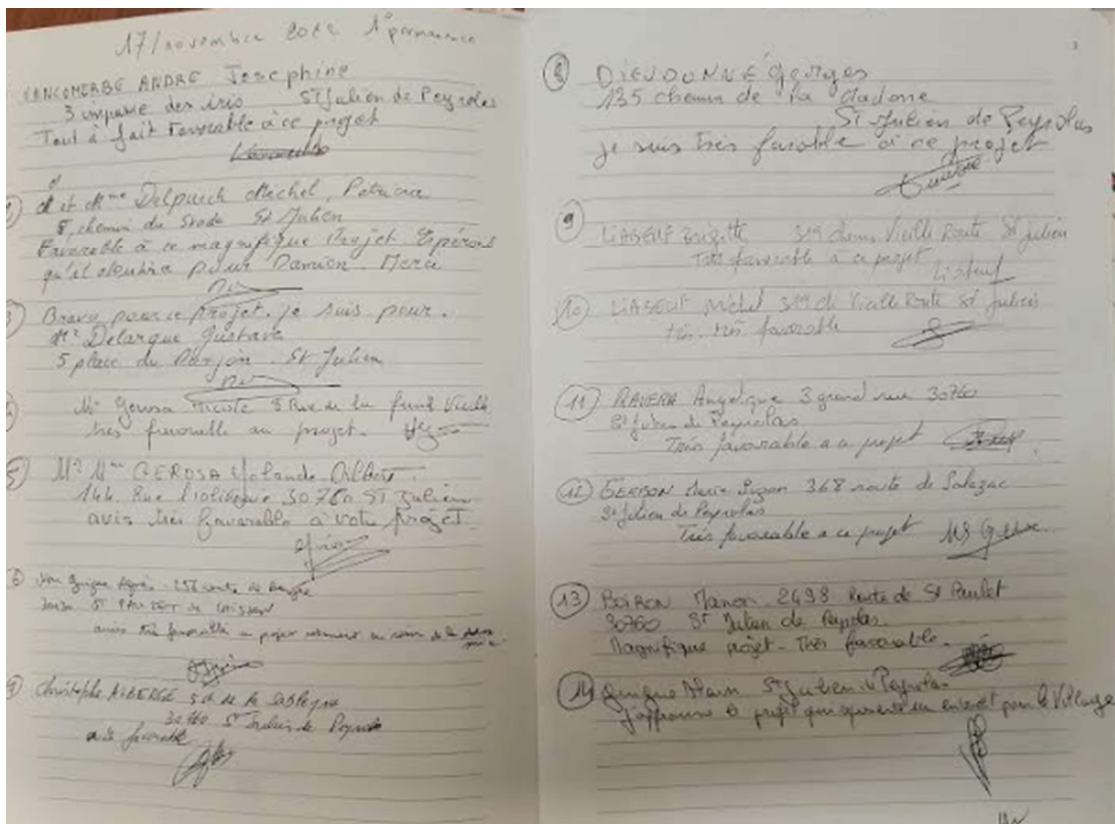 17/novembre 2022 1° permanence
CANCOMERBE ANDRE Josephine
3 impasse des iris St Julien de Peyrolas
Tout à fait Favorable à ce projet
M et Mme Delpuech Michel, Patricia
8, chemin du Stade St Julien
Favorable à ce magnifique Projet Espérons
qu'il aboutira pour Damien. Merci
3 Bravo pour ce projet. je suis pour.
Mr Delarque Gustave
5 place du Donjon. St Julien
Mr Gerosa 8 Rue de la font Vieille
très favorable au projet.
5 Mr Mme GEROSA Yolande Gilbert
144 Rue 30760 ST Julien
avis très favorable à votre projet.
6
ST PAULET de CAISSON
avis très favorable
Christophe ALBERGE 5 de la Sablière
30760 St Julien de Peyrolas
avis favorable
8 DIEUDONNÉ Georges
135 chemin de la Madone
St Julien de Peyrolas
je suis très favorable à ce projet
9 LIABEUF Brigitte 319 chem Vieille Route St Julien
Très favorable à ce projet
10 LIABEUF Michel 319 ch Vieille Route St Julien
très. très favorable
11 RAVERA Angelique 3 grand rue 30760
St Julien de Peyrolas
Très favorable a ce projet
12 GERBON Marie Suzon 368 route de Salazac
St Julien de Peyrolas
Très favorable a ce projet
13 BOIRON Manon. 2498 Route de St Paulet
30760 St Julien de Peyrolas.
Magnifique projet. Très favorable.
14 Guigue Alain St Julien de Peyrolas
j'approuve ce projet qui un interet pour le Village